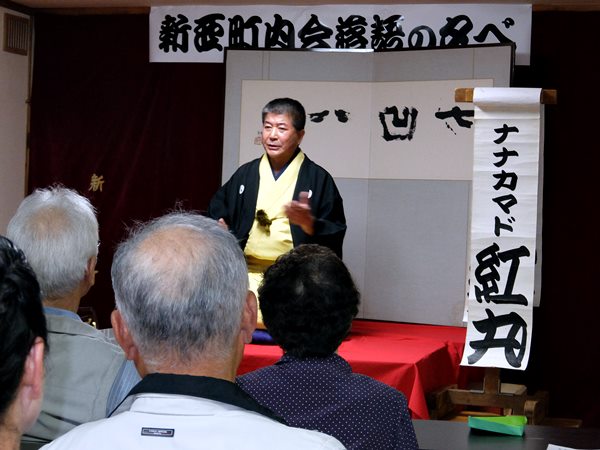 新西町内会落語の夕べ
七凹八
ナナカマド
紅丸
新